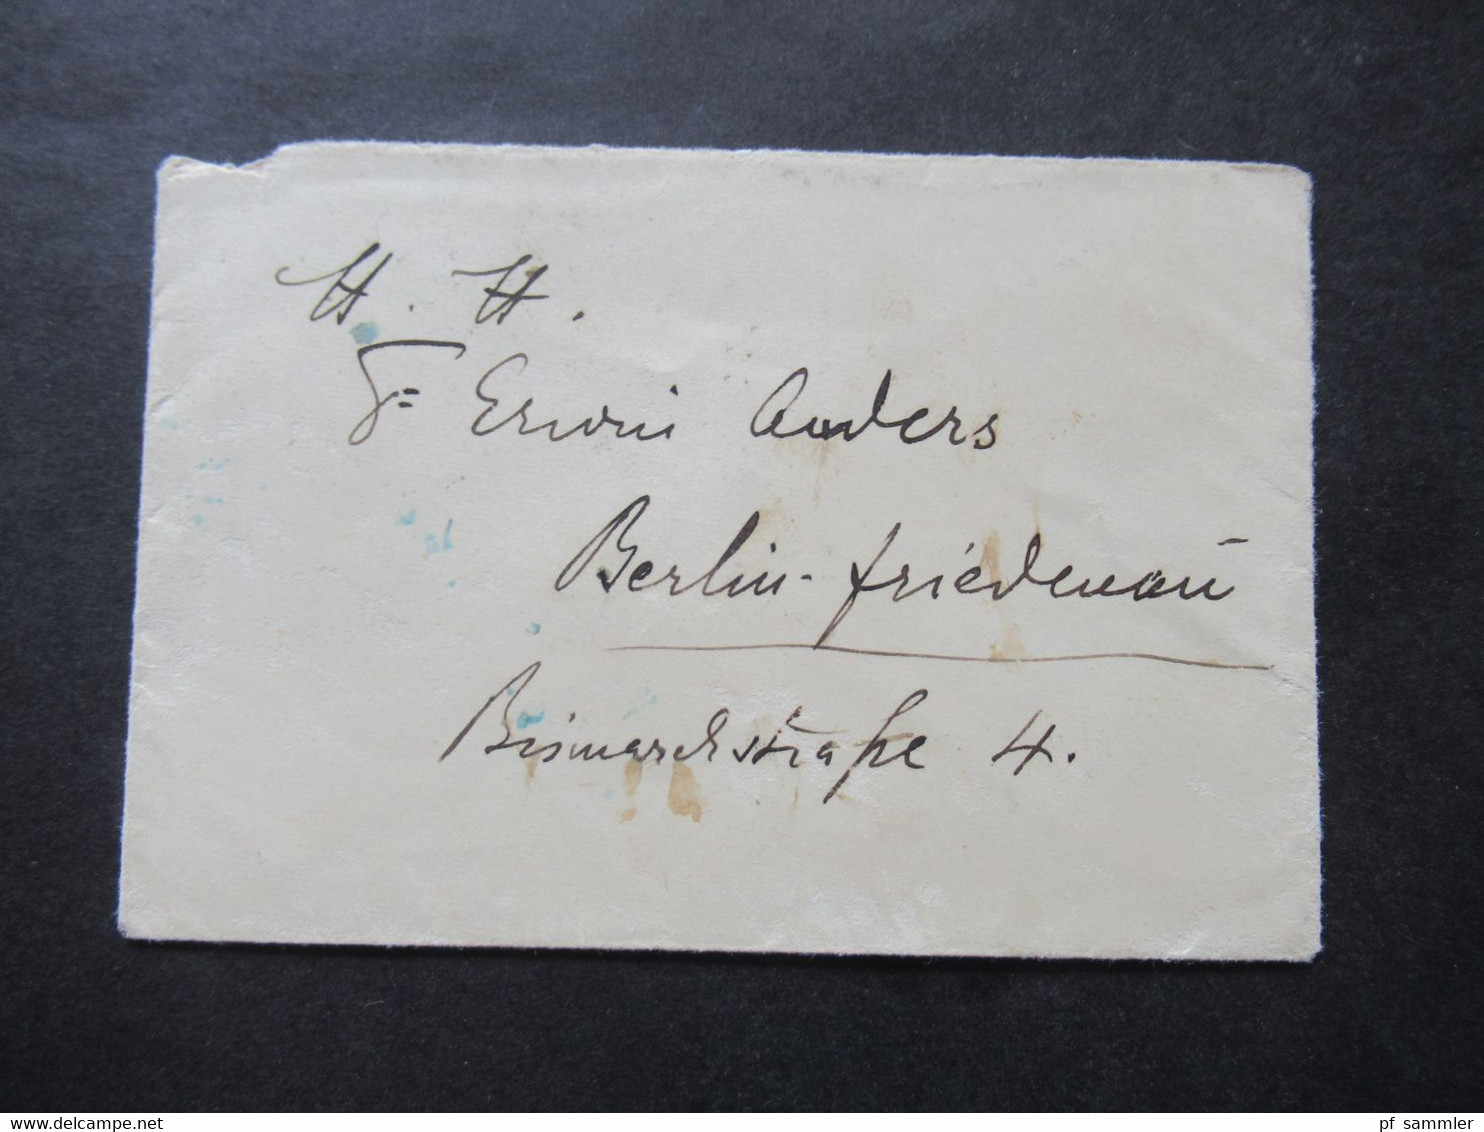 H. H.
Erwin Anders
Berlin-Friedenau
Bismarckstraße 4.
www.delcampe.net
pf_sammler